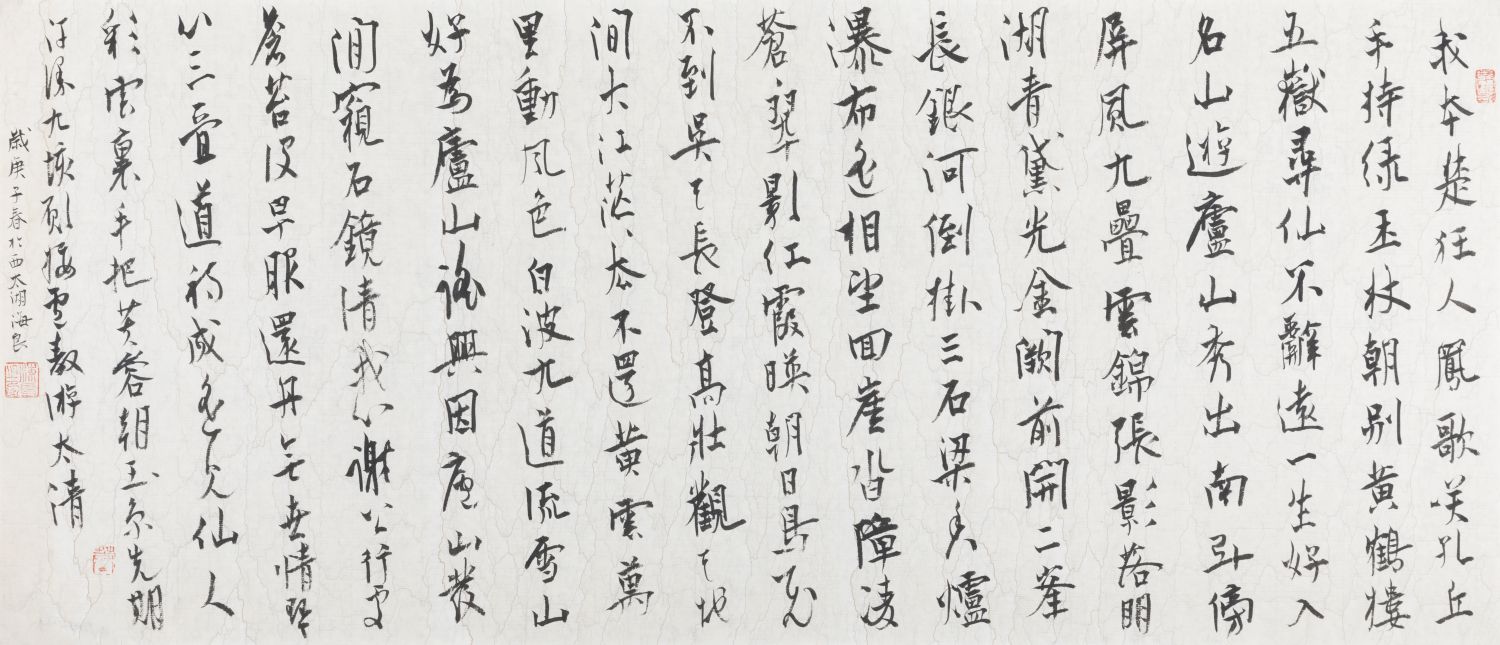 我本楚狂人鳳歌笑孔丘
手持綠玉杖朝別黃鶴樓
五嶽尋仙不辭遠一生好入
名山遊廬山秀出南斗傍
屏風九疊雲錦張影落明
湖青黛光金闕前開二峯
長銀河倒掛三石梁香爐
瀑布遙相望回崖沓障凌
蒼翠影紅霞映朝日鳥飛
不到吳天長登高壯觀天地
間大江茫〻去不還黃雲萬
里動風色白波九道流雪山
好為廬山謠興因廬山發
閒窺石鏡清我心謝公行處
蒼苔沒早服還丹無世情琴
心三疊道初成遙見仙人
彩雲裏手把芙蓉朝玉京先期
汗漫九垓願接盧敖游太清
歲庚子春於西太湖海良